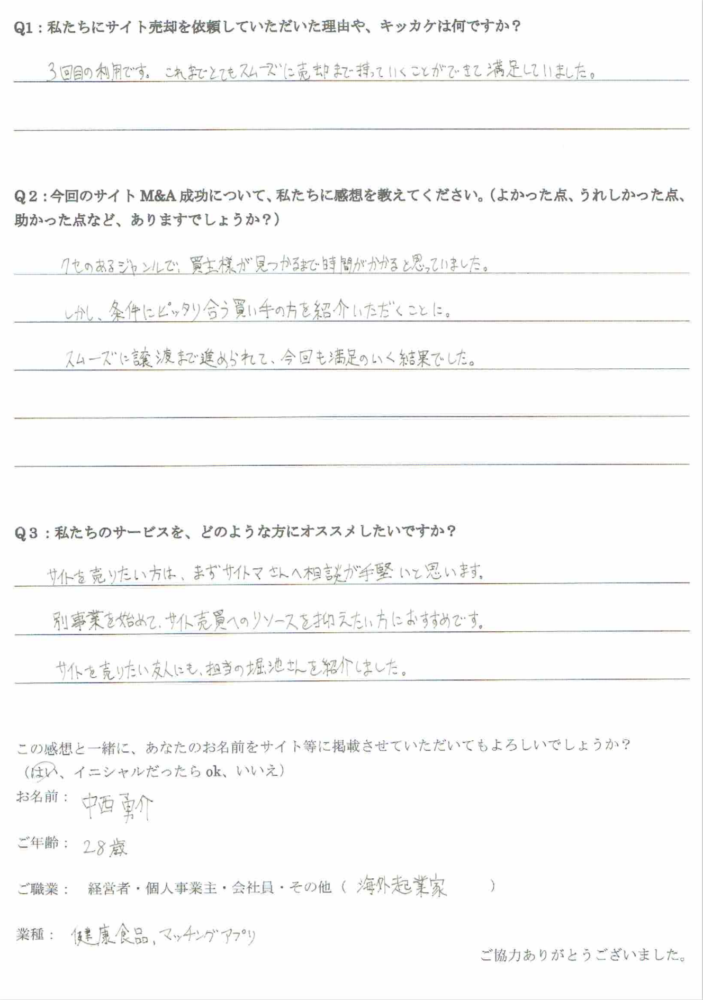 Q1：私たちにサイト売却を依頼していただいた理由や、キッカケは何ですか？
3回目の利用です。これまでとてもスムーズに売却まで持っていくことができて満足していました。
Q2：今回のサイト M&A 成功について、私たちに感想を教えてください。（よかった点、うれしかった点、
助かった点など、ありますでしょうか？）
クセのあるジャンルで、買主様が見つかるまで時間がかかると思っていました。
しかし、条件にピッタリ合う買い手の方を紹介いただくことに。
スムーズに譲渡まで進められて、今回も満足のいく結果でした。
Q3：私たちのサービスを、どのような方にオススメしたいですか？
サイトを売りたい方は、まずサイトマさんへ相談が手堅いと思います。
別事業を始めて、サイト売買へのリソースを抑えたい方におすすめです。
サイトを売りたい友人にも、担当の堀池さんを紹介しました。
この感想と一緒に、あなたのお名前をサイト等に掲載させていただいてもよろしいでしょうか？
（はい、イニシャルだったら ok、いいえ）
お名前： 中西勇介
ご年齢： 28歳
ご職業： 経営者・個人事業主・会社員・その他（ 海外起業家 ）
業種： 健康食品, マッチングアプリ
ご協力ありがとうございました。